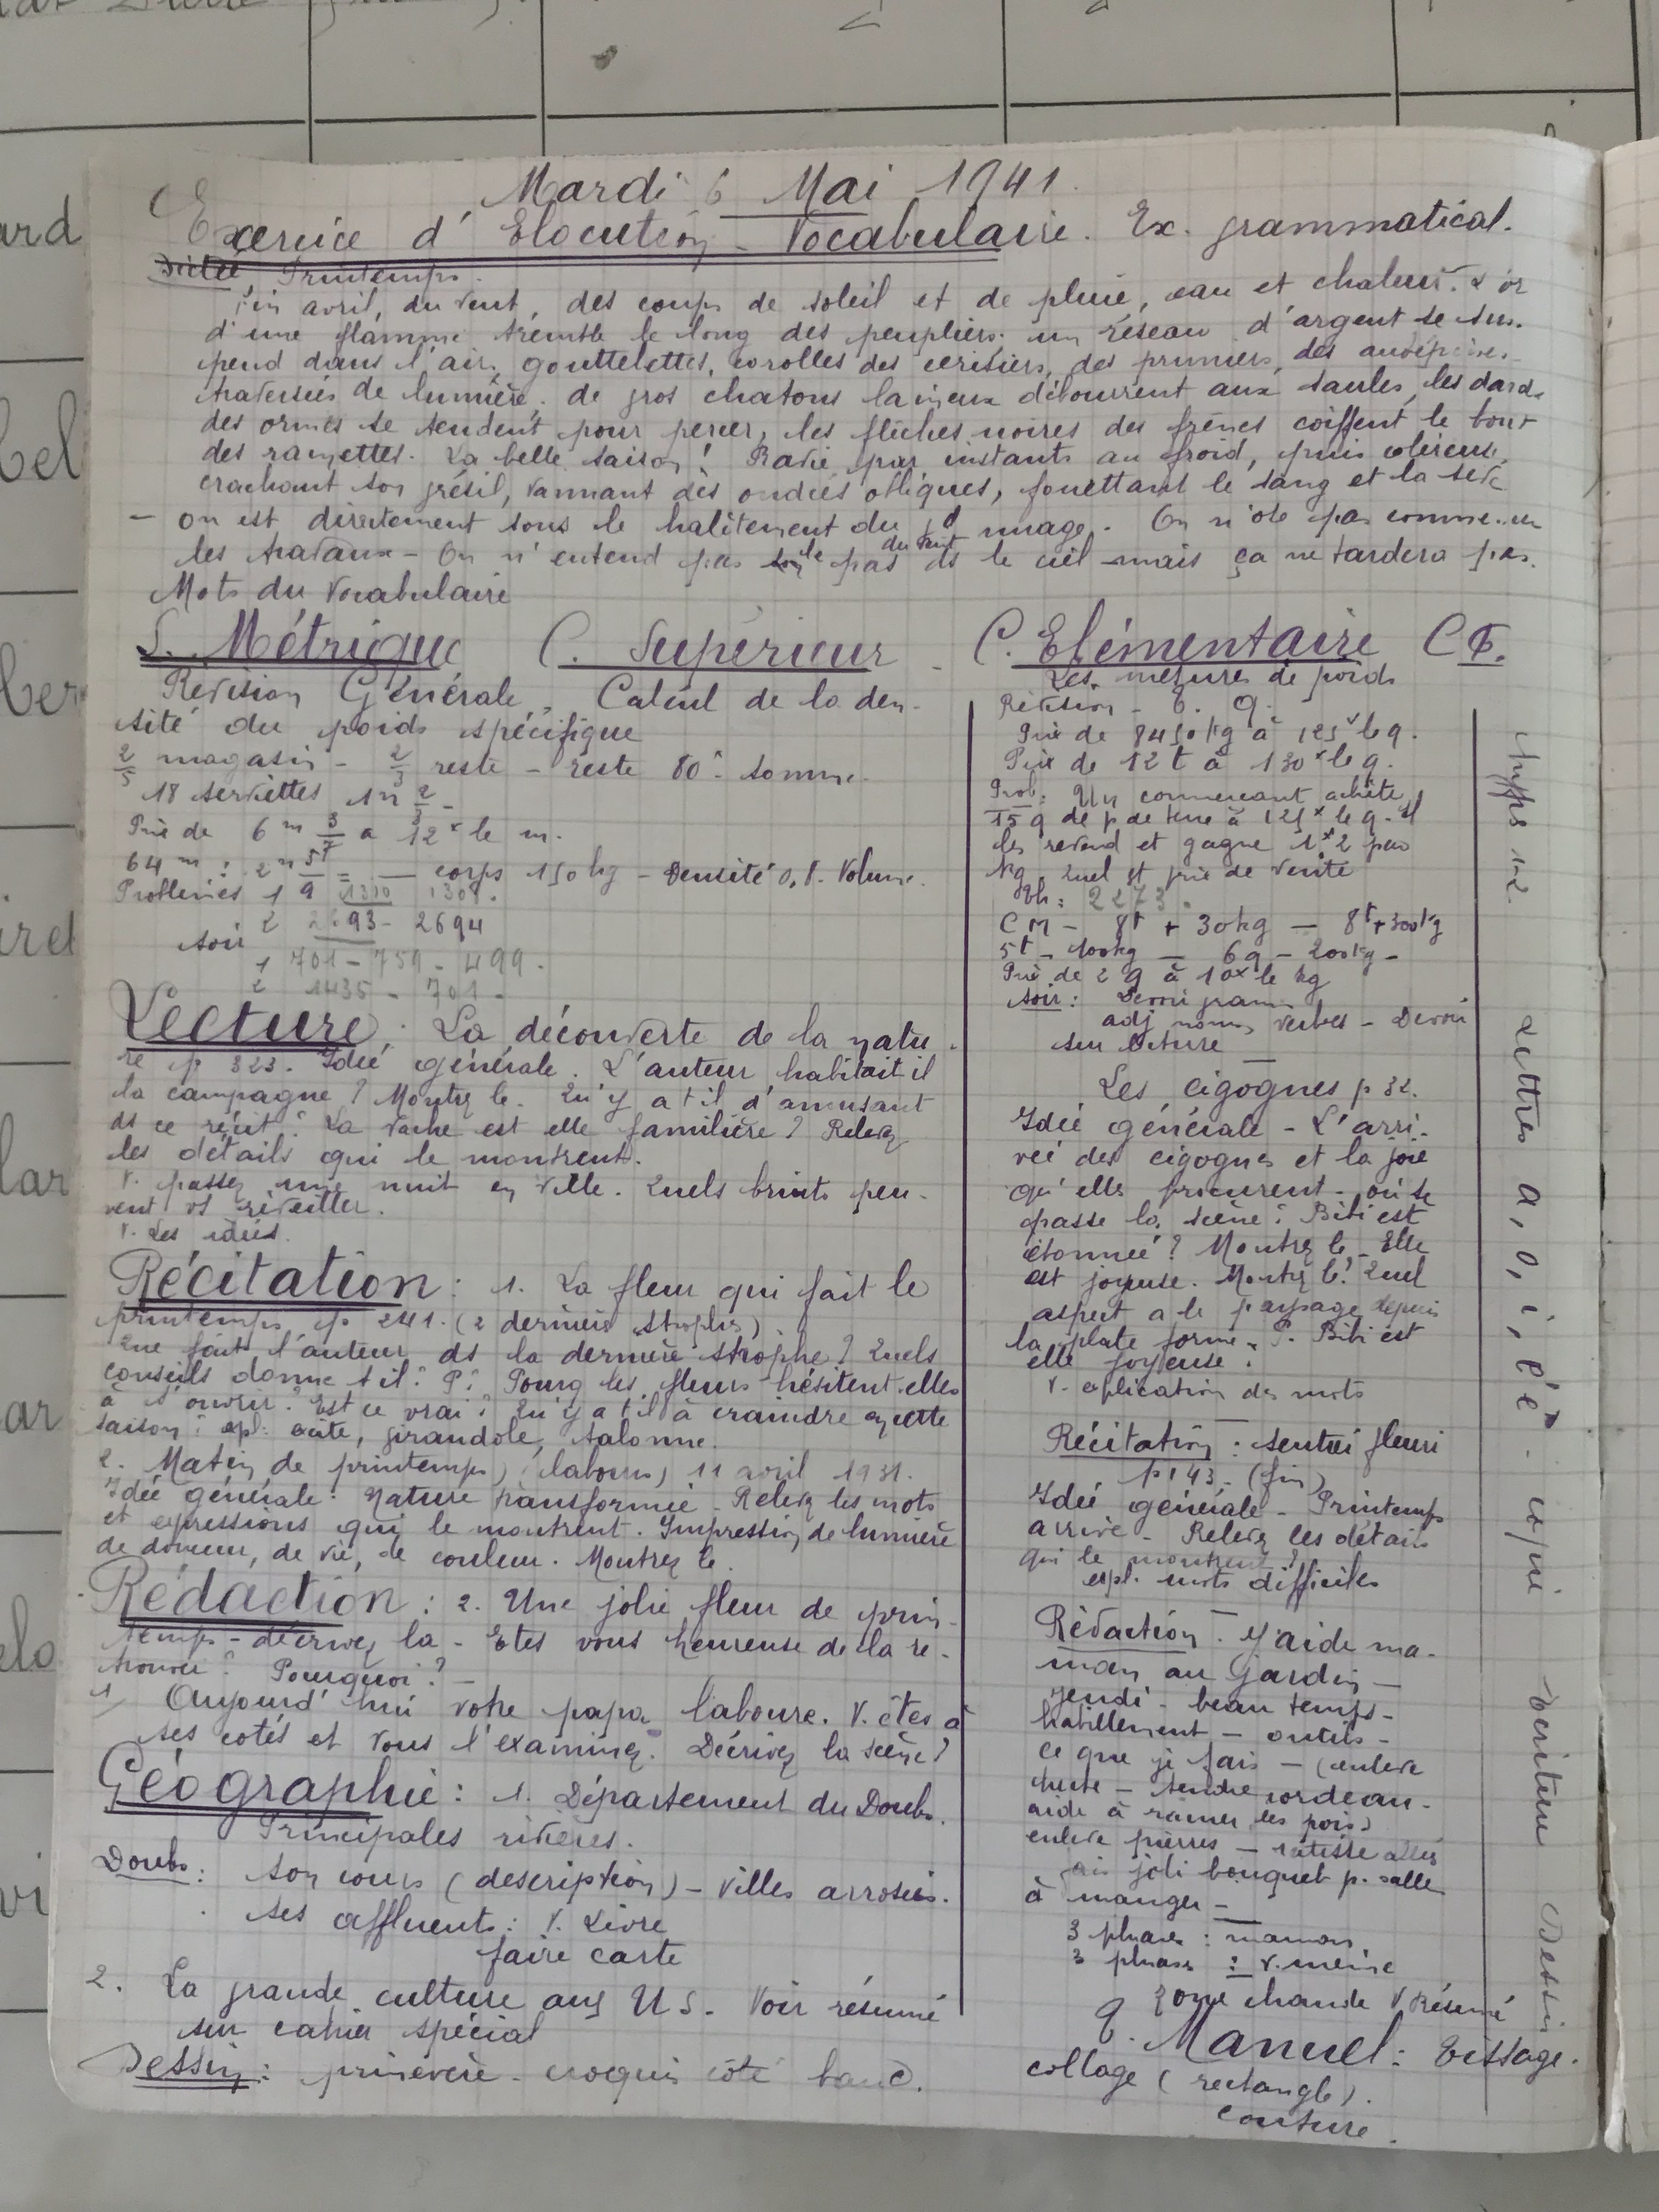 Mardi 6 Mai 1941.
Exercice d' Elocution - Vocabulaire. Ex. grammatical.
Dictée, Printemps.
Fin avril, du vent, des coups de soleil et de pluie, eau et chaleur. L'or
d'une flamme tremble le long des peupliers. un réseau d'argent se sus.
pend dans l'air, gouttelettes, corolles des cerisiers, des pruniers, des aubépines.
traversées de lumière. de gros chatons laineux débourrent aux saules, les dards
des ormes se tendent pour percer, les flèches noires des frênes coiffent le bout
des ramettes. La belle saison! Ravie par instants au froid, puis coléreuse
crachant son grésil, vannant des ondées obliques, fouettant le sang et la sève
- on est directement sous le halètement du gd nuage. On n'ose pas commencer
les travaux - On n'entend pas le pas du vent ds le ciel mais ça ne tardera pas.
Mots du Vocabulaire
S. Métrique C. Supérieur -
Révision Générale. Calcul de la den-
sité du poids spécifique
2/5 magasin - 2/3 reste - reste 80 - somme.
18 serviettes 1m 2/3 -
Prix de 6m 3/7 a 12x le m.
64m : 2m 5/9 = — corps 150 kg - Densité 0,8. Volume.
Problèmes 1 1300 1301.
2 2693 - 2694
soir
1 701 - 759 - 499.
2 1435 - 701.
Lecture : La découverte de la natu-
re p 323. Idée générale. L'auteur habitait il
la campagne? Montrez le. Qu'y a t il d'amusant
ds ce récit? La vache est elle familière? Relevez
les détails qui le montrent.
V. passez une nuit en ville. Quels bruits peu-
vent vs réveiller.
V. Les idées.
Récitation : 1. La fleur qui fait le
printemps p 241. (2 dernières strophes)
Que fait l'auteur ds la dernière strophe? Quels
conseils donne t il? P? Pourq les fleurs hésitent elles
à s'ouvrir? Est ce vrai? Qu'y a t il à craindre en cette
saison? expl: girandole, talonne.
2. Matin de printemps (labours) 11 avril 1931.
Idée générale: Nature transformée - Relevez les mots
et expressions qui le montrent. Impression de lumière
de douceur, de vie, de couleur. Montrez le.
Rédaction : 2. Une jolie fleur de prin-
temps - décrivez la - Etes vous heureuse de la re-
trouver? Pourquoi? -
1) Aujourd'hui votre papa laboure. V. êtes à
ses cotés et vous l'examinez. Décrivez la scène?
Géographie : 1. Département du Doubs.
Principales rivières.
Doubs : son cours (description) - villes arrosées.
ses affluents : V. Livre
faire carte
2. La grande culture aux U S. Voir résumé
sur cahier spécial
Dessin : primevère - croquis côté
C. Elémentaire CE.
Les mesures de poids
Révision - t. q.
Prix de 8450 kg à 125x le q.
Prix de 12 t à 130x le q.
Prob: Un commerçant achète
15 q de p de terre à 125x le q. Il
les revend et gagne 1x2 par
kg. Quel est prix de vente
Pb: 2273.
C M - 8t + 30kg — 8t + 300kg
5t - 100kg — 6q - 200kg -
Prix de 2 q à 10x le kg
Soir: Devoir gram
adj noms, verbes - Devoir
sur lecture —
Les cigognes p 32.
Idée générale - L'arri-
vée des cigognes et la joie
qu'elles procurent - où se
passe la scène? Bibi est
étonnée? Montrez le - Elle
est joyeuse. Montrez le. Quel
aspect a le paysage depuis
la plate forme. P. Bibi est
elle joyeuse?
V. explication des mots
Récitation : sentier fleuri
p 143. (fin)
Idée générale - Printemps
arrive - Relevez les détails
qui le montrent?
expl. mots difficiles
Rédaction. J'aide ma-
man au Jardin —
Jeudi - beau temps -
habillement - outils -
ce que je fais - (enlève
herbe - tendre cordeau -
aide à ramer les pois)
enlève pierres - ratisse allées
joli bouquet p. salle
à manger -
3 phrases : maman
3 phrases : v. même
G. Zone chaude V Résumé
T. Manuel : Tissage.
collage (rectangle).
couture.
Lettres a, o, i, é è - copie - écriture Dessin